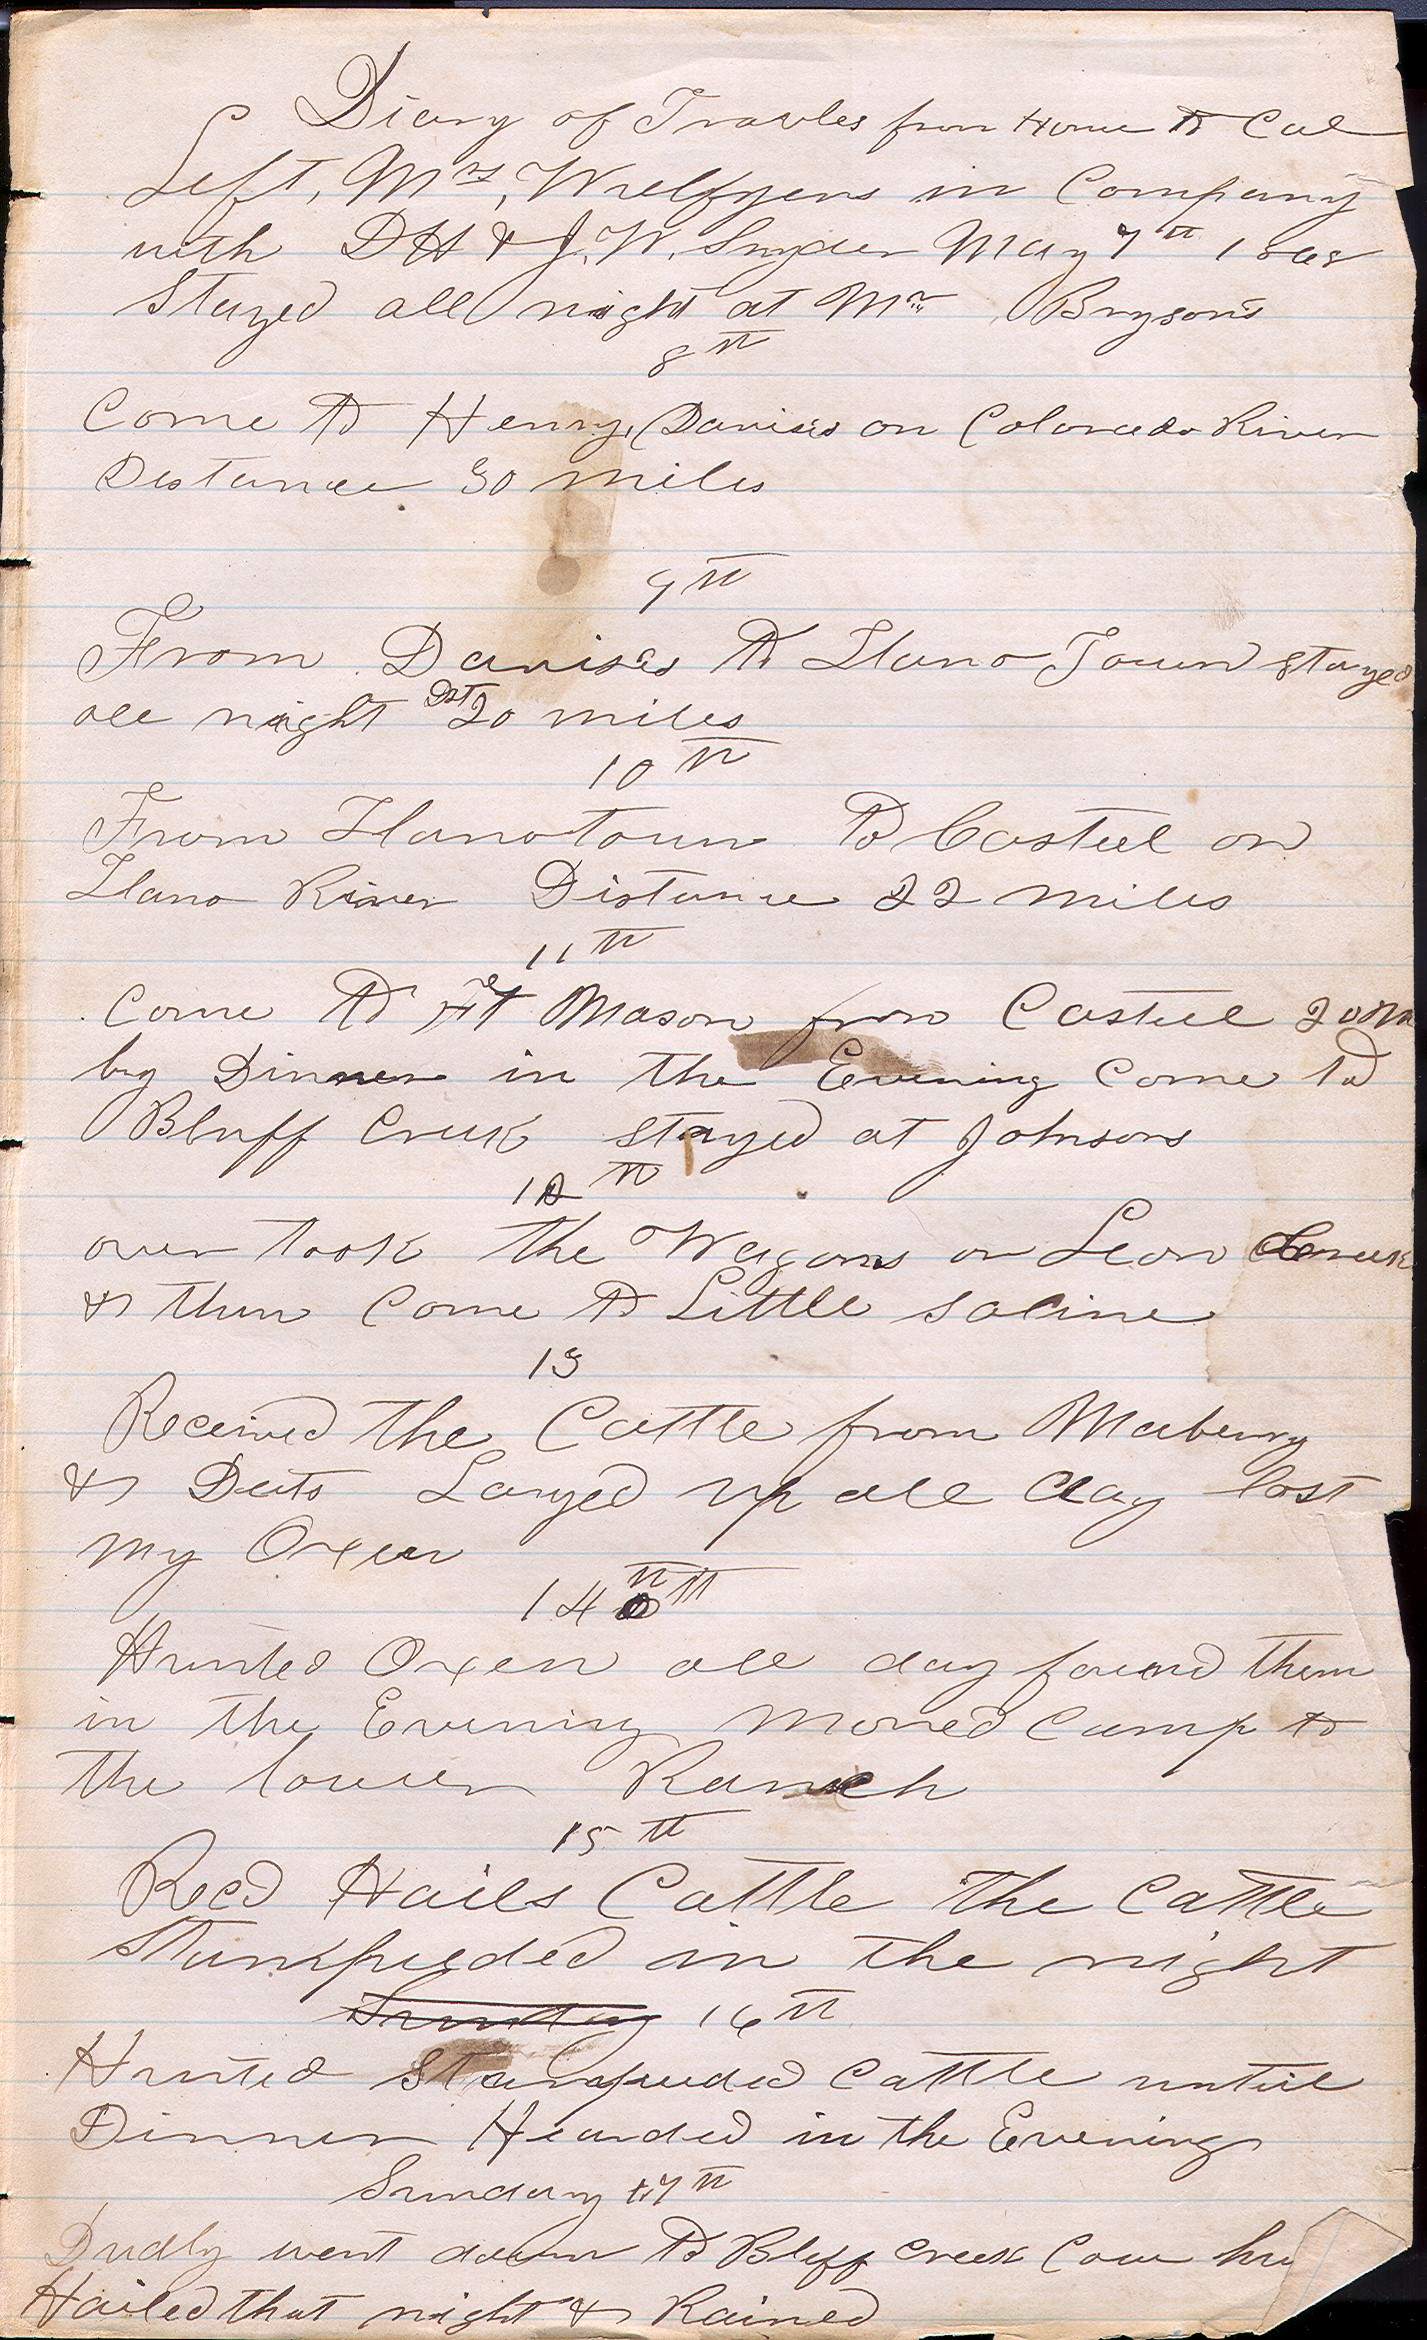 Diary of Travles from Home to Cal
Left, Mrs, Wulfjens in Company
with D H & J. W. Snyder May 7th 1868
Stayed all night at Mr. Brysons
8th
Come to Henry, Davises on Colorado River
Distance 30 miles
9th
From Davises to Llano Town stayed
all night Dst 20 miles
10th
From Llanotown to Casteel on
Llano River Distance 22 miles
11th
Come to Ft Mason from Casteel 20 M
by Dinner in the Evening Come to
Bluff Creek stayed at Johnsons
12th
over took the Wagons on Leon Creek
& then Come to Little saline
13
Received the Cattle from Maberry
& Deets Layed up all day lost
my Oxen
14th
Hunted Oxen all day found them
in the Evening moved Camp to
the lower Ranch
15th
Recd Hails Cattle the Cattle
Stampeeded in the night
Sunday 16th
Hunted Stampeeded Cattle until
Dinner Hearded in the Evening
Sunday 17th
Dudly went down to Bluff Creek Cow
Hailed that night & Rained